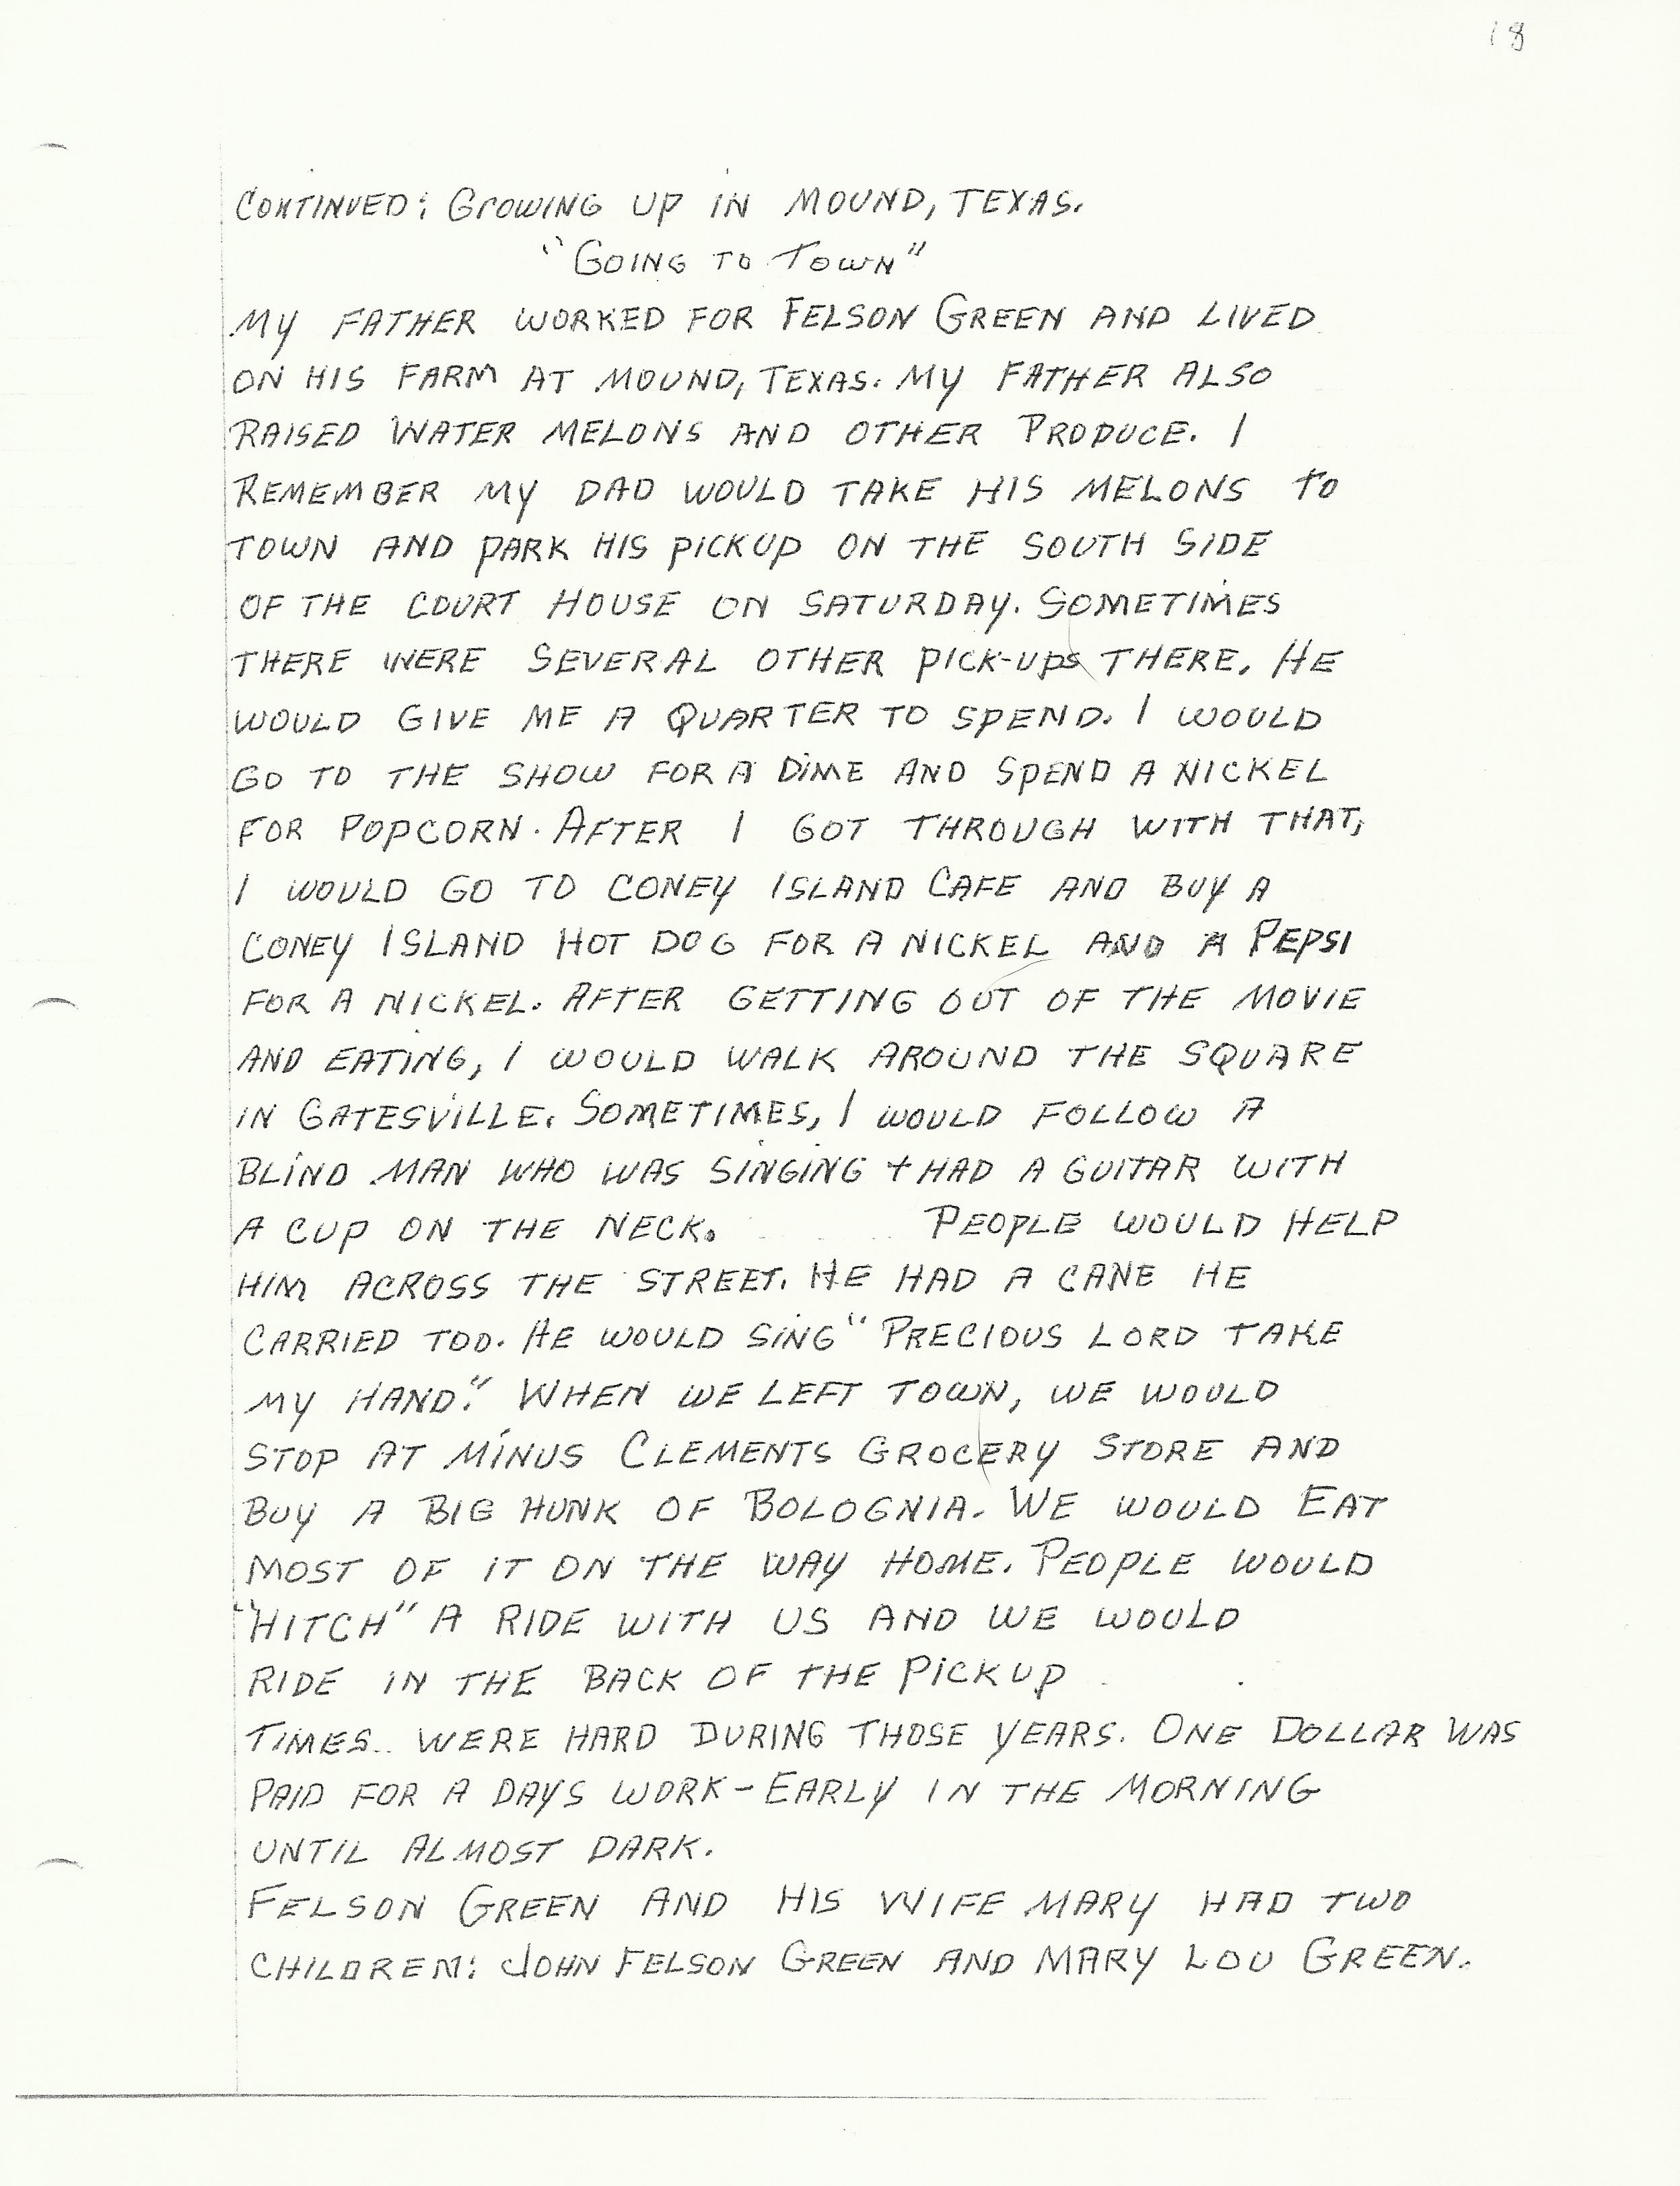 18
CONTINUED: GROWING UP IN MOUND, TEXAS.
"GOING TO TOWN"
MY FATHER WORKED FOR FELSON GREEN AND LIVED
ON HIS FARM AT MOUND, TEXAS. MY FATHER ALSO
RAISED WATER MELONS AND OTHER PRODUCE. I
REMEMBER MY DAD WOULD TAKE HIS MELONS TO
TOWN AND PARK HIS PICKUP ON THE SOUTH SIDE
OF THE COURT HOUSE ON SATURDAY. SOMETIMES
THERE WERE SEVERAL OTHER PICK-UPS THERE. HE
WOULD GIVE ME A QUARTER TO SPEND. I WOULD
GO TO THE SHOW FOR A DIME AND SPEND A NICKEL
FOR POPCORN. AFTER I GOT THROUGH WITH THAT,
I WOULD GO TO CONEY ISLAND CAFE AND BUY A
CONEY ISLAND HOT DOG FOR A NICKEL AND A PEPSI
FOR A NICKEL. AFTER GETTING OUT OF THE MOVIE
AND EATING, I WOULD WALK AROUND THE SQUARE
IN GATESVILLE. SOMETIMES, I WOULD FOLLOW A
BLIND MAN WHO WAS SINGING + HAD A GUITAR WITH
A CUP ON THE NECK. PEOPLE WOULD HELP
HIM ACROSS THE STREET. HE HAD A CANE HE
CARRIED TOO. HE WOULD SING "PRECIOUS LORD TAKE
MY HAND." WHEN WE LEFT TOWN, WE WOULD
STOP AT MINUS CLEMENTS GROCERY STORE AND
BUY A BIG HUNK OF BOLOGNIA. WE WOULD EAT
MOST OF IT ON THE WAY HOME. PEOPLE WOULD
"HITCH" A RIDE WITH US AND WE WOULD
RIDE IN THE BACK OF THE PICKUP
TIMES.. WERE HARD DURING THOSE YEARS. ONE DOLLAR WAS
PAID FOR A DAYS WORK - EARLY IN THE MORNING
UNTIL ALMOST DARK.
FELSON GREEN AND HIS WIFE MARY HAD TWO
CHILDREN: JOHN FELSON GREEN AND MARY LOU GREEN.